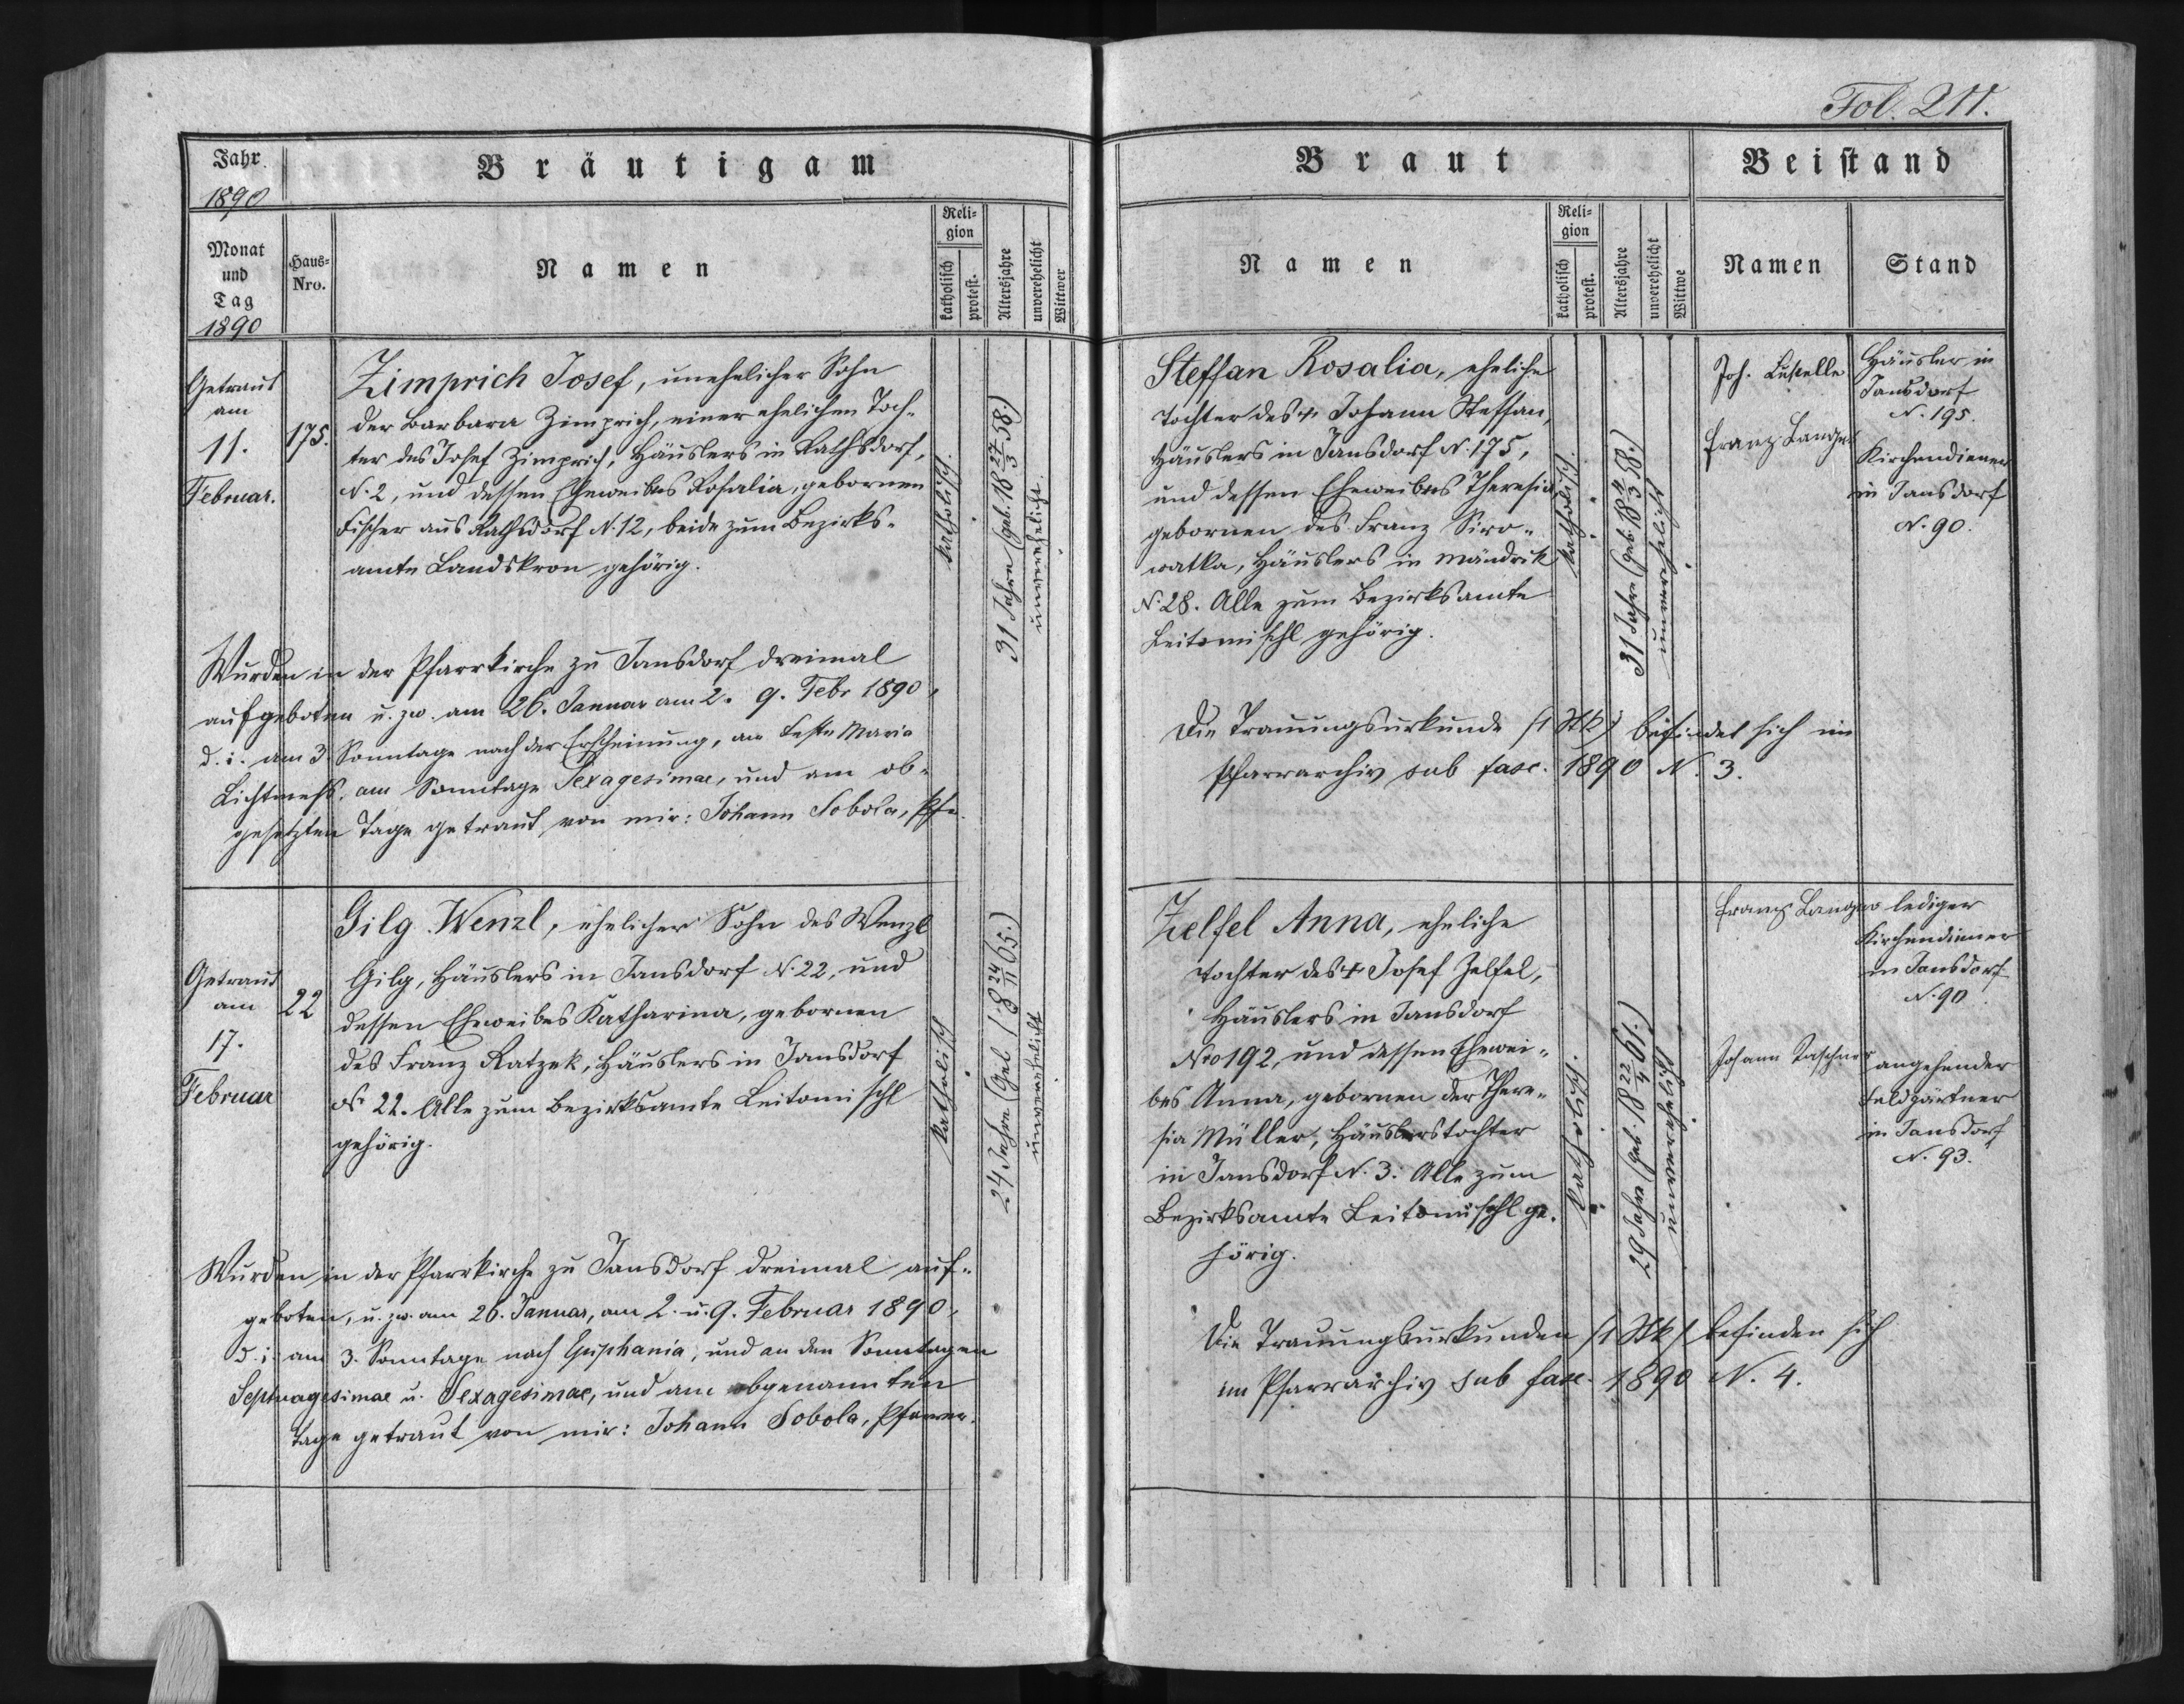 Fol. 211.
Jahr
1890
Bräutigam
Monat
und
Tag
1890
Haus-
Nro.
Namen
Reli-
gion
katholisch
protest.
Altersjahre
unverehelicht
Wittwer
Braut
Namen
Reli-
gion
katholisch
protest.
Altersjahre
unverehelicht
Wittwe
Beistand
Namen
Stand
Getraut
am
11.
Februar.
175.
Zimprich Josef, unehelicher Sohn
der Barbara Zimprich, einer ehelichen Toch-
ter des Josef Zimprich, Häuslers in Rathsdorf,
N. 2, und dessen Eheweibes Rosalia, gebornen
Fischer aus Rathsdorf N. 12, beide zum Bezirks-
amte Landskron gehörig.
katholisch.
31 Jahre (geb. 18 27/3 58.)
unverehelicht.
Wurden in der Pfarrkirche zu Jansdorf dreimal
aufgeboten u. zw. am 26. Januar am 2. 9. Febr 1890,
d. i. am 3. Sonntage nach der Erscheinung, am Feste Maria
Lichtmeß, am Sonntage Sexagesimae, und am ob-
gesetzten Tage getraut von mir: Johann Sobola, Pfr.
Steffan Rosalia, eheliche
Tochter des + Johann Steffan,
Häuslers in Jansdorf N. 175,
und dessen Eheweibes Theresia
gebornen des Franz Siro-
watka, Häuslers in Mändrik
N. 28. Alle zum Bezirksamte
Leitomischl gehörig.
katholisch.
31 Jahre (geb. 18 /3 58.)
unverehelicht
Joh.
Häusler in
Jansdorf
N. 195.
Franz Langer
Kirchendiener
in Jansdorf
N. 90.
Die Trauungsurkunde (1 Stk) befindet sich im
Pfarrarchiv sub fasc. 1890 N. 3.
Getraut
am
17.
Februar
22
Gilg Wenzl, ehelicher Sohn des Wenzl
Gilg, Häuslers in Jansdorf N. 22, und
dessen Eheweibes Katharina, gebornen
des Franz Ratzek, Häuslers in Jansdorf
N 22. Alle zum Bezirksamte Leitomischl
gehörig.
katholisch
24 Jahre (geb 18 24/11 65.)
unverehelicht
Wurden in der Pfarrkirche zu Jansdorf dreimal auf-
geboten, u. zw. am 26. Januar, am 2. u. 9. Februar 1890,
d. i. am 3. Sonntage nach Epiphania, und an den Sonntagen
Septuagesimae u. Sexagesimae, und am obgenannten
Tage getraut von mir: Johann Sobola, Pfarrer.
Zelfel Anna, eheliche
Tochter des + Josef Zelfel,
Häuslers in Jansdorf
Nro 192, und dessen Ehewei-
bes Anna, gebornen der There-
sia Müller, Häuslerstochter
in Jansdorf N. 3. Alle zum
Bezirksamte Leitomischl ge-
hörig.
katholisch.
29 Jahre (geb. 18 22/4 61.)
unverehelicht
Franz Langer
lediger
Kirchendiener
in Jansdorf
N. 90
Johann Taschner
angehender
Feldgärtner
in Jansdorf
N. 93.
Die Trauungsurkunden (1 Stk) befinden sich
im Pfarrarchiv sub fasc. 1890 N. 4.